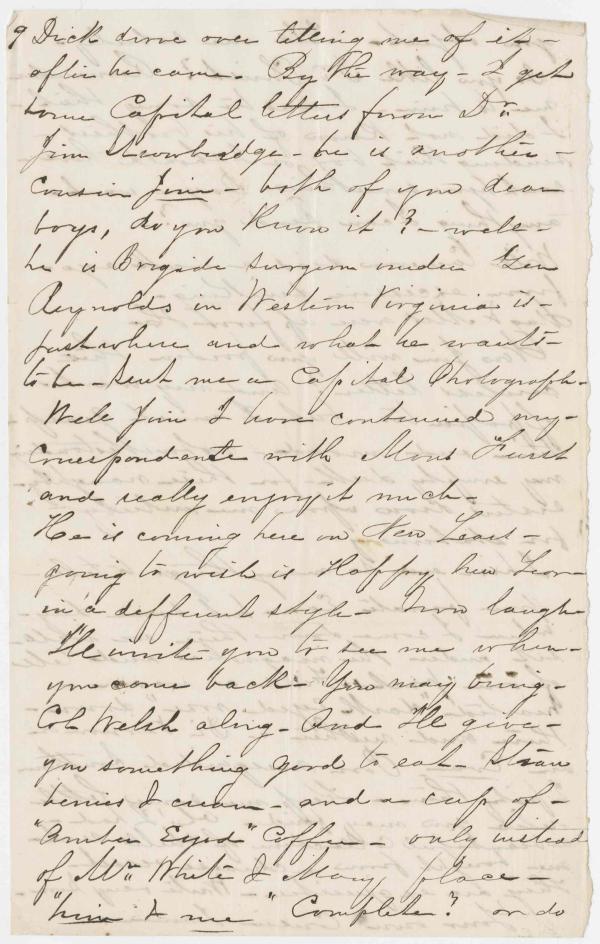 9 Dick drove over telling me of it -
after he came. By the way - I get
some Capital letters from Dr.
Jim Strowbridge - he is another -
Cousin Jim - both of you dear
boys, do you Know it? - well -
he is Brigade Surgeon under Gen
Reynolds in Western Virginia is -
just where and what he wants -
to be - Sent me a Capital Photograph -
Well Jim I have continued my -
Correspondence with Mons Furst
and really enjoy it much -
He is coming here on New Years -
going to wish us Happy New Year -
in a different style - Now laugh
I'll invite you to see me when -
you come back - You may bring -
Col Welsh along - And I'll give -
you something good to eat - Straw
berries & cream - and a cup of -
"Amber Eyed" Coffee - only instead
of Mr. White & Mary place -
"him & me" Complete? or do